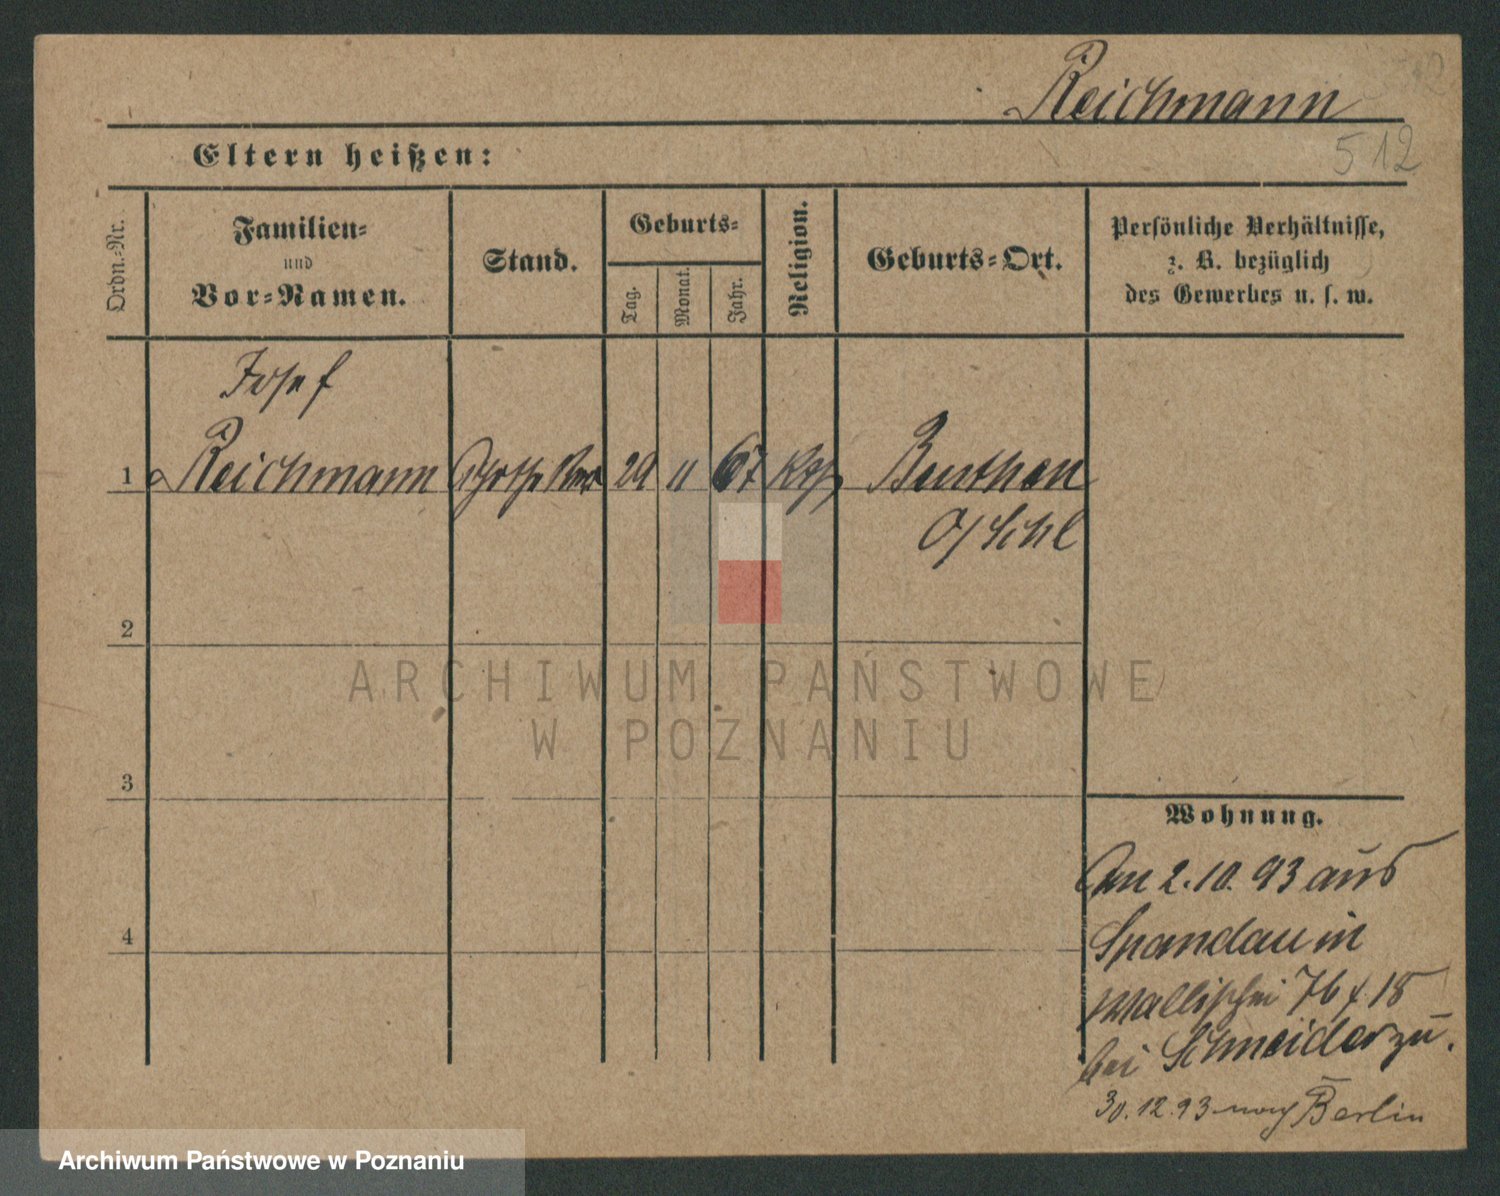 Reichmann
512
Eltern heißen:
Ordn.-Nr.
Familien-
und
Vor-Namen.
Stand.
Geburts-
Tag.
Monat.
Jahr.
Religion.
Geburts-Ort.
Persönliche Verhältnisse,
z. B. bezüglich
des Gewerbes u. s. w.
Josef
1 Reichmann 29 11 67 Kth Beuthen
O/Schl
2
3
4
Wohnung.
Am 2.10.93 aus
Spandau in
Wallischei 76 f. 18
bei Schneider zu.
30.12.93 nach Berlin
ARCHIWUM PAŃSTWOWE
W POZNANIU
Archiwum Państwowe w Poznaniu